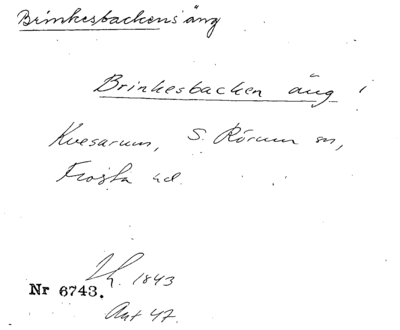 Brinkesbackens äng
Brinkesbacken äng
Kvesarum, S. Rörum sn,
Frosta hd.
1843
Nr 6743.
Ant 47.